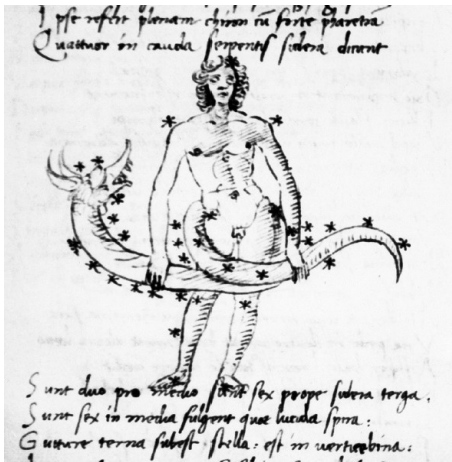 Ipse refert plenam chiron cū forte pharetrā
Quattuor in cauda serpentis sidera dicunt
Sunt duo pro medio sunt sex prope sidera terga.
Sunt sex in media fulgent quae lucida spira.
Gutture terna subest stilla: est in